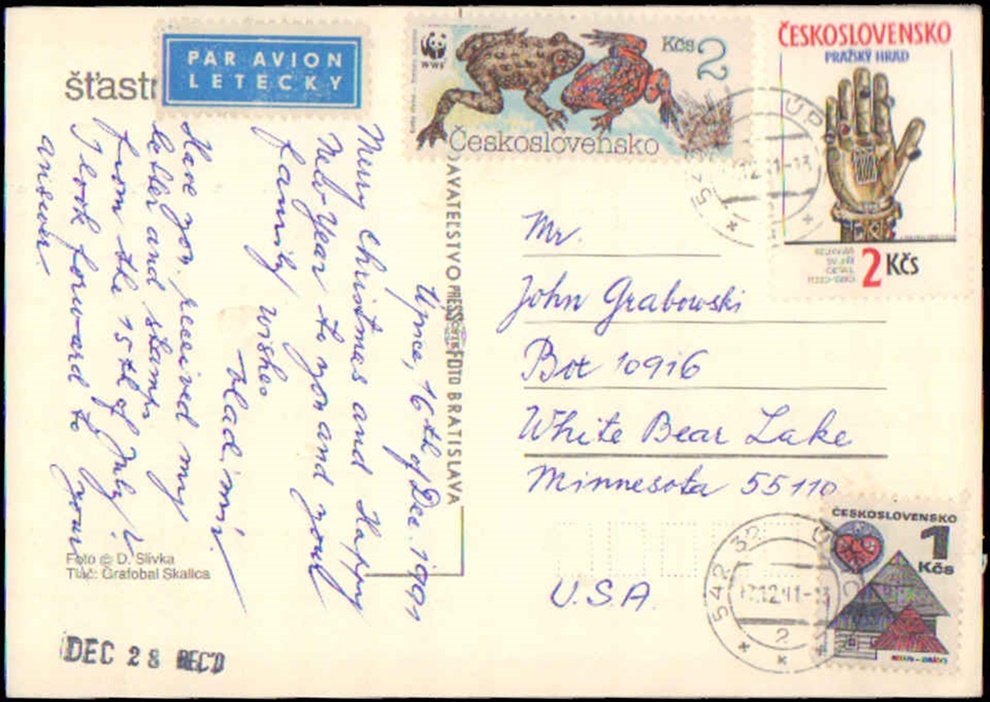 šťastn
PAR AVION
LETECKY
WWF
Kčs 2
Československo
ČESKOSLOVENSKO
PRAŽSKÝ HRAD
2 Kčs
Upice, 16th of Dec. 1991
Merry Christmas and Happy
New Year to you and your
family wishes
Vladimír
Have you received my
letter and stamps
from the 15th of July?
I look forward to your
answer.
DAVATEĽSTVO PRESSFOTO BRATISLAVA
Mr.
John Grabowski
Box 10916
White Bear Lake
Minnesota 55110
U.S.A.
ČESKOSLOVENSKO
1
Kčs
542 32 ÚP
12.91-13
2
Foto © D. Slivka
Tlač: Grafobal Skalica
DEC 28 REC'D